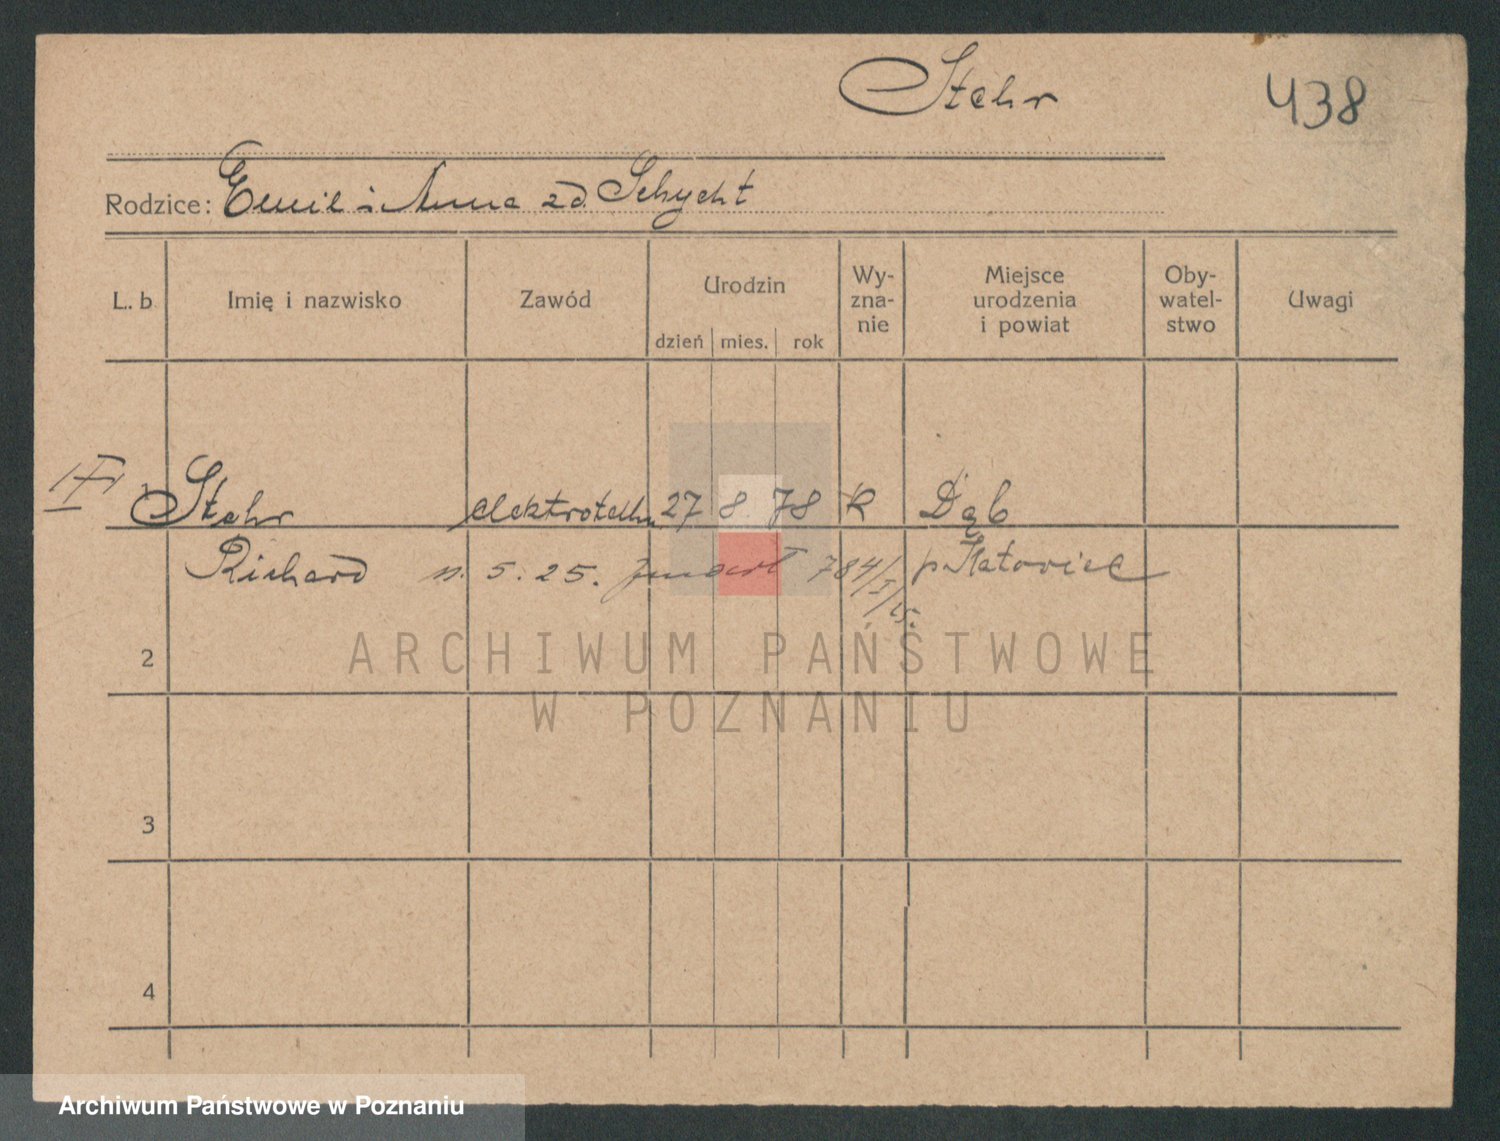 Stehr
438
Rodzice: Emil i Anna zd. Schycht
L. b. Imię i nazwisko Zawód Urodzin dzień mies. rok Wy-zna-nie Miejsce urodzenia i powiat Oby-watel-stwo Uwagi
1 Stehr 27 8 78 K Dąb
Richard 5. 25. zmarł 784/I/25. p. Katowice
2
ARCHIWUM PAŃSTWOWE
W POZNANIU
3
4
Archiwum Państwowe w Poznaniu